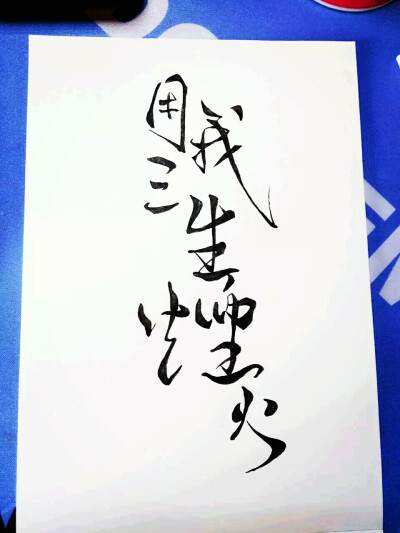 我用三生煙火